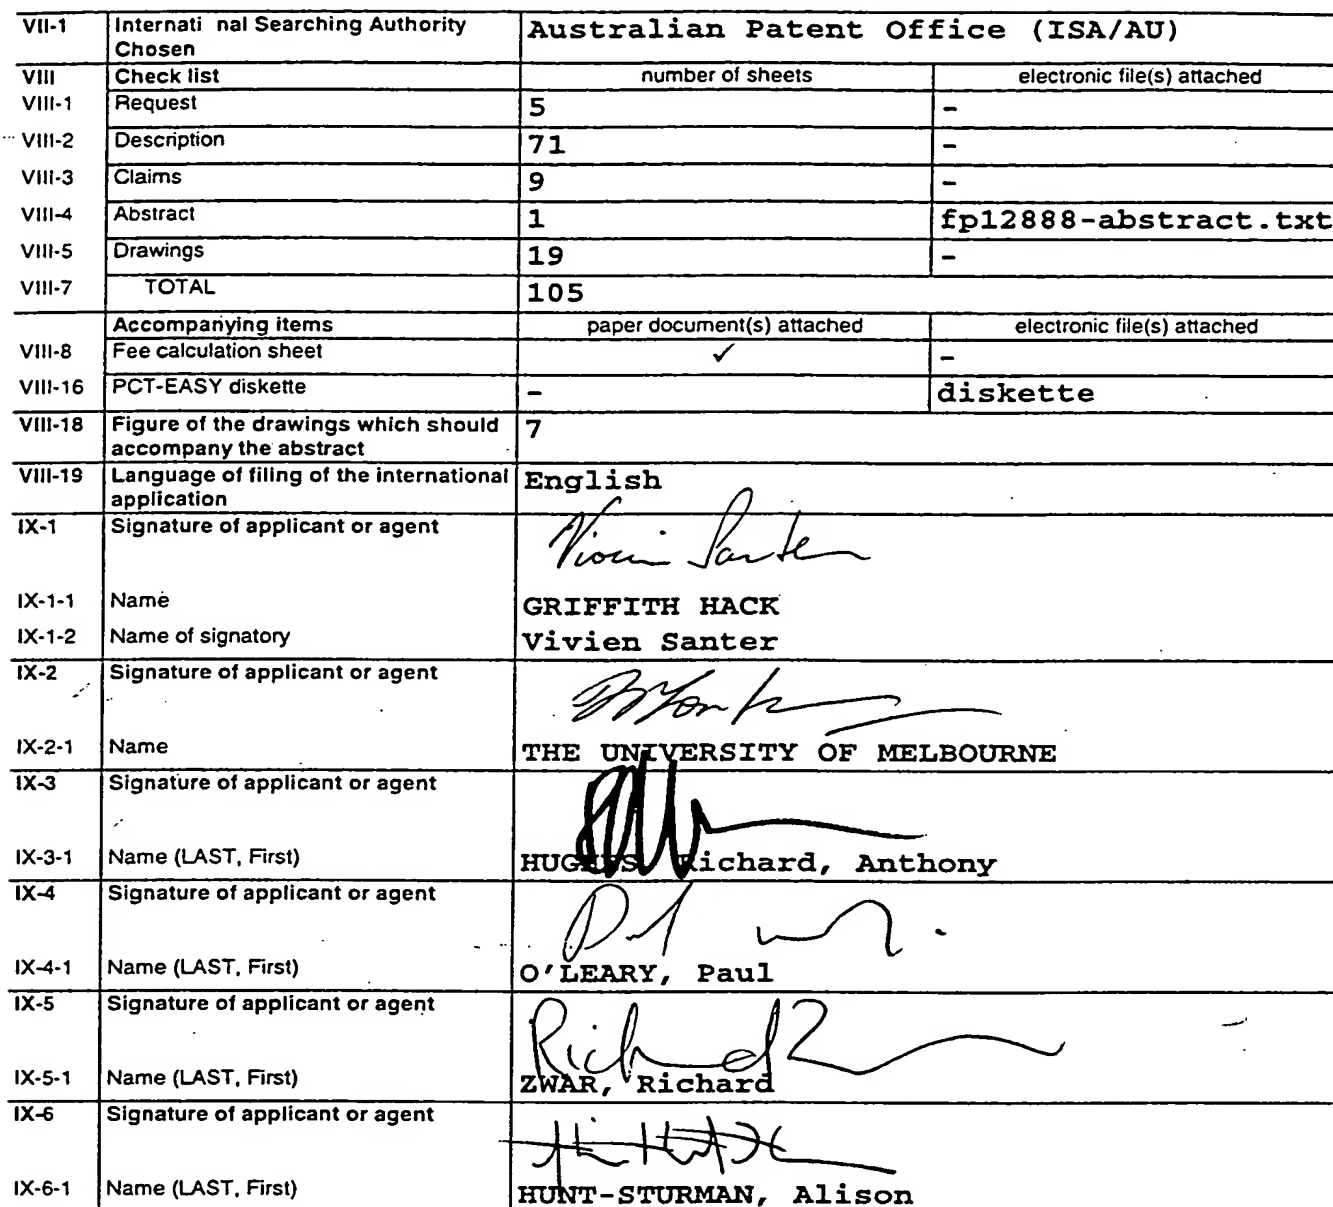 VII-1 Internati nal Searching Authority Chosen Australian Patent Office (ISA/AU)
VIII Check list number of sheets electronic file(s) attached
VIII-1 Request 5 -
VIII-2 Description 71 -
VIII-3 Claims 9 -
VIII-4 Abstract 1 fp12888-abstract.txt
VIII-5 Drawings 19 -
VIII-7 TOTAL 105
Accompanying items paper document(s) attached electronic file(s) attached
VIII-8 Fee calculation sheet ✓ -
VIII-16 PCT-EASY diskette - diskette
VIII-18 Figure of the drawings which should accompany the abstract 7
VIII-19 Language of filing of the international application English
IX-1 Signature of applicant or agent
IX-1-1 Name GRIFFITH HACK
IX-1-2 Name of signatory Vivien Santer
IX-2 Signature of applicant or agent
IX-2-1 Name THE UNIVERSITY OF MELBOURNE
IX-3 Signature of applicant or agent
IX-3-1 Name (LAST, First) HUGHES, Richard, Anthony
IX-4 Signature of applicant or agent
IX-4-1 Name (LAST, First) O'LEARY, Paul
IX-5 Signature of applicant or agent
IX-5-1 Name (LAST, First) ZWAR, Richard
IX-6 Signature of applicant or agent
IX-6-1 Name (LAST, First) HUNT-STURMAN, Alison